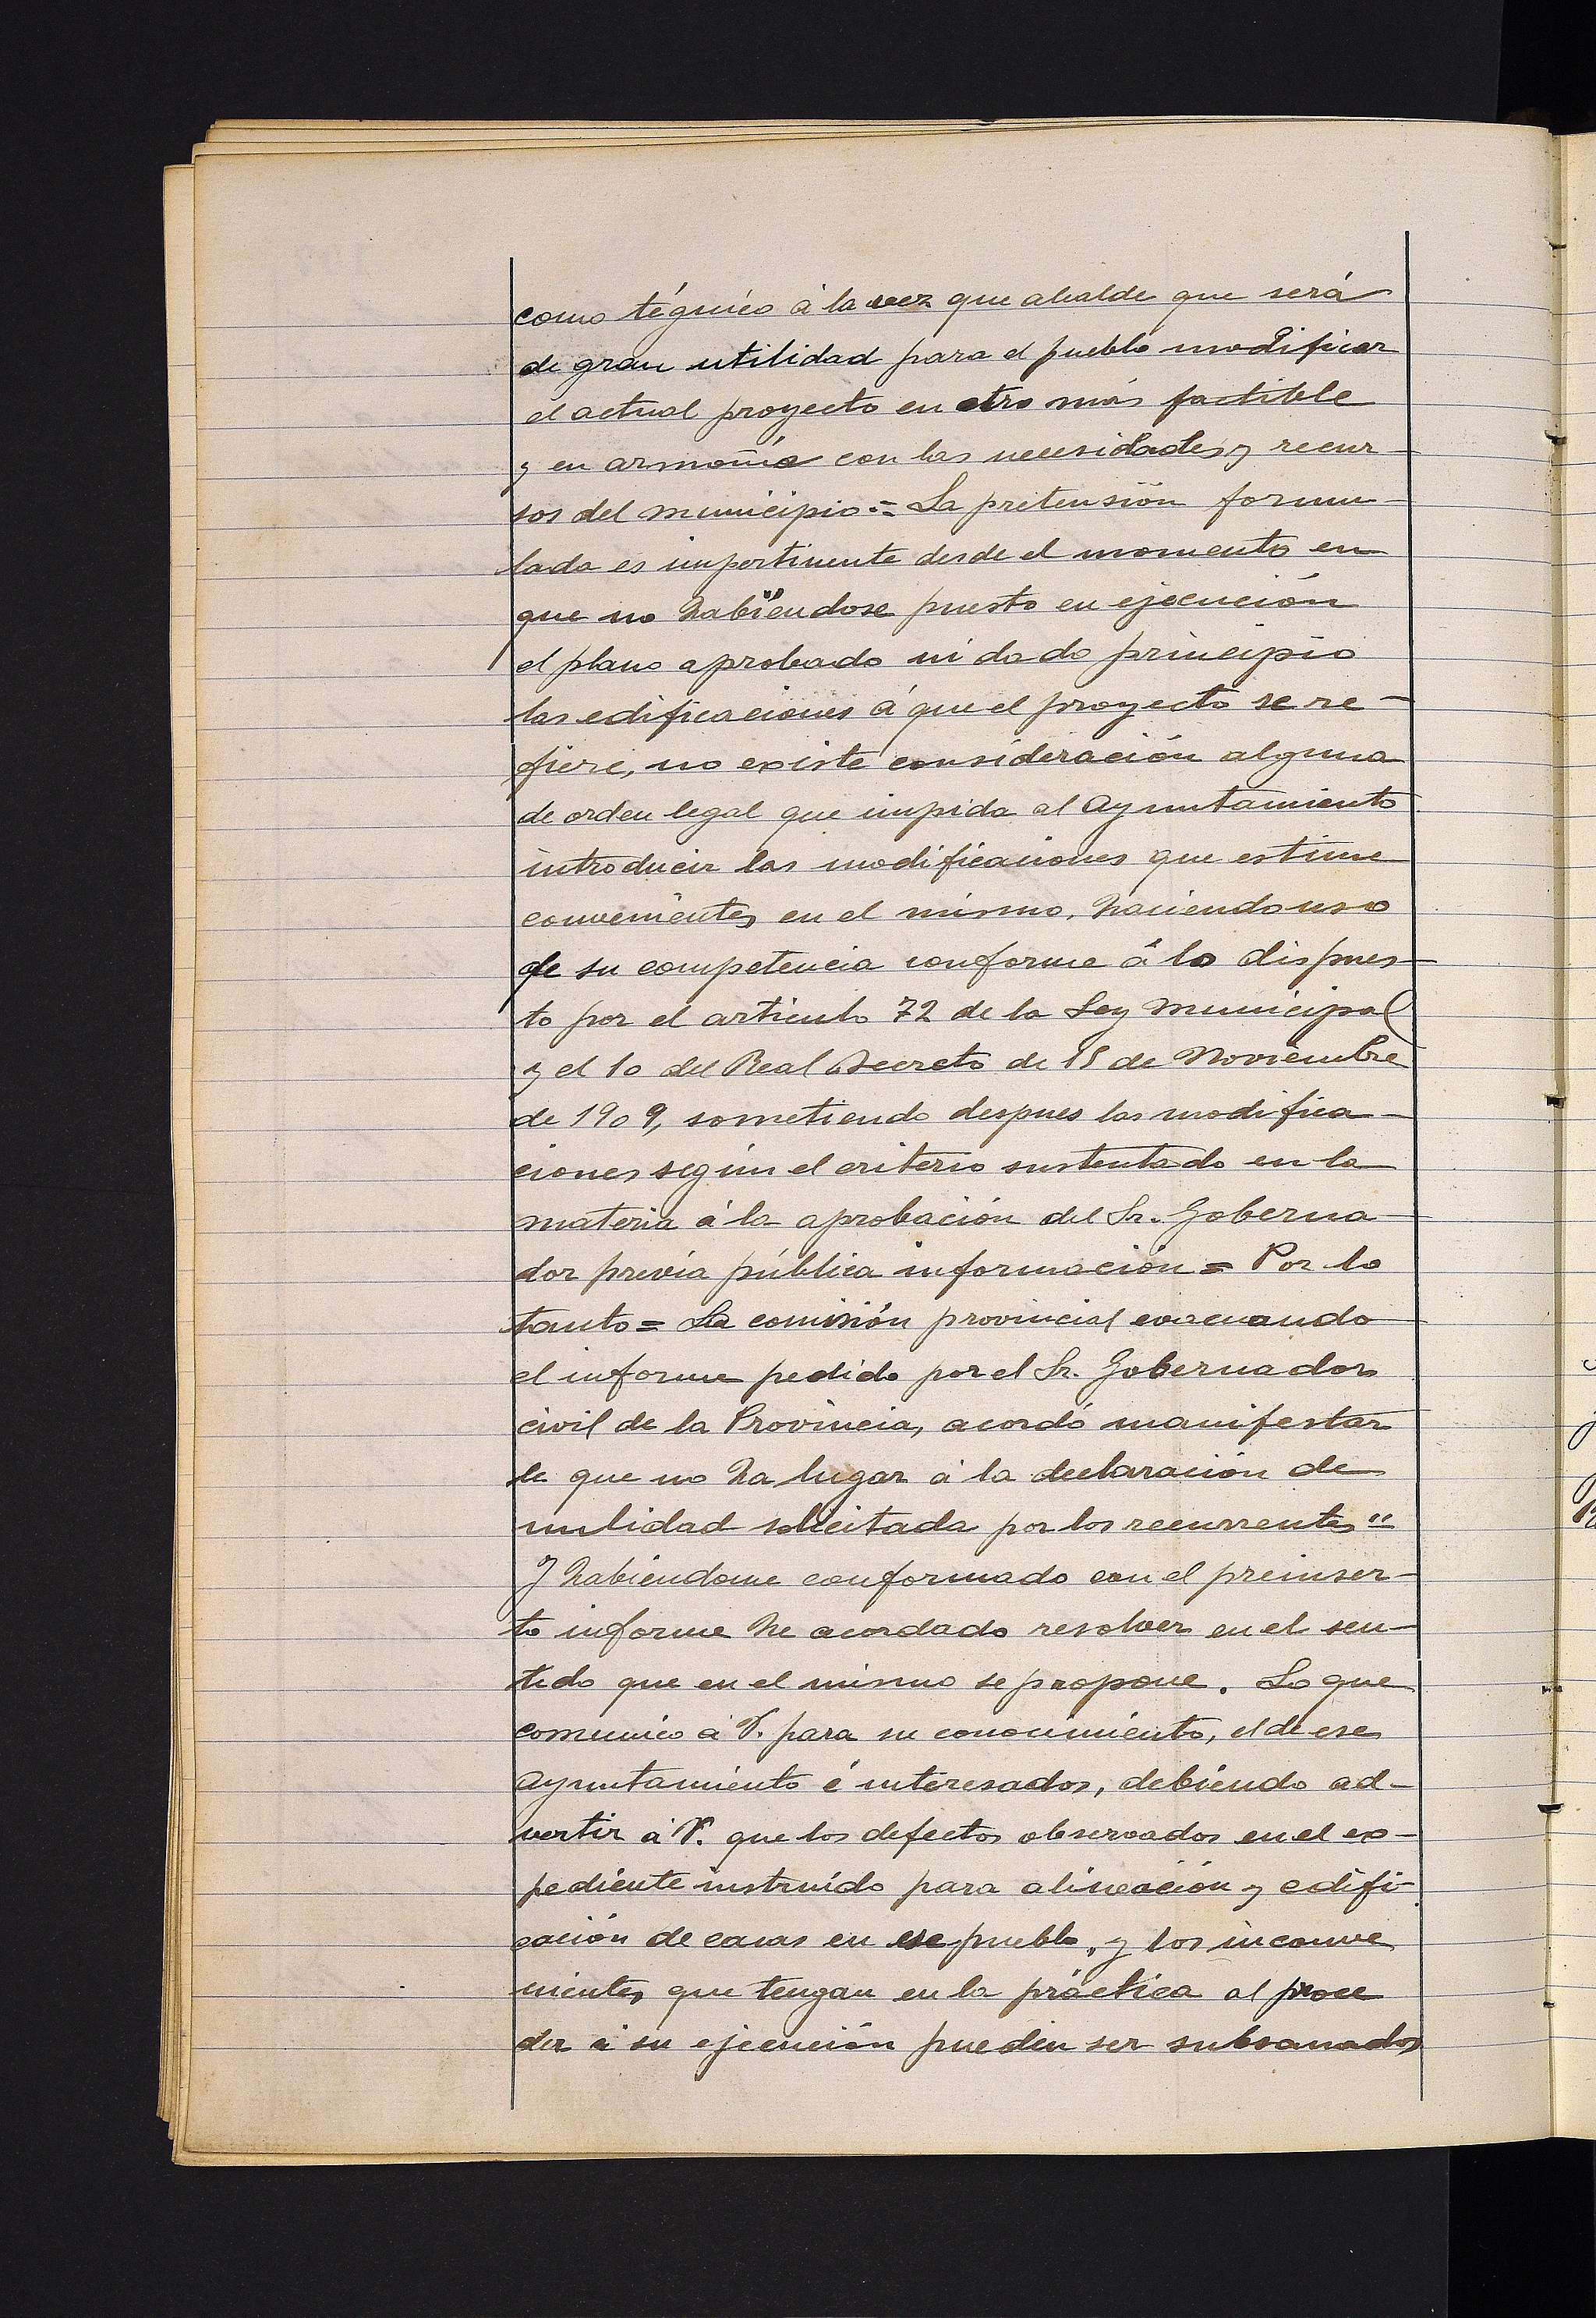 como tégnico á la vez que alcalde que será
de gran utilidad para el pueblo modificar
el actual proyecto en otro más factible
y en armoñía con las necesidades y recur-
sos del municipio = La pretensión formu-
lada es impertinente desde el momento en
que no habiéndose puesto en ejecución
el plano aprobado ni dado principio
las edificaciones á que el proyecto se re-
fiere, no existe consideración alguna
de orden legal que impida al Ayuntamiento
introducir las modificaciones que estime
convenientes en el mismo, haciendo uso
de su competencia conforme á lo dispues-
to por el articulo 72 de la Ley Municipal
y el 1o del Real Decreto de 15 de Noviembre
de 1909, sometiendo despues las modifica-
ciones según el criterio sustentado en la
materia á la aprobación del Sr. Goberna-
dor previa pública información = Por lo
tanto = La comisión provincial evacuando
el informe pedido por el Sr. Gobernador
civil de la Provincia, acordó manifestar
le que no ha lugar á la declaración de
nulidad solicitada por los recurrentes"
Y habiéndome conformado con el preinser-
to informe he acordado resolver en el sen-
tido que en el mismo se propone. Lo que
comunico á V. para su conocimiento, el de ese
Ayuntamiento é interesados, debiendo ad-
vertir á V. que los defectos observados en el ex-
pediente instruído para alineación y edifi-
cación de casas en ese pueblo, y los inconve
nientes que tengan en la práctica al proce
der á su ejecución pueden ser subsanados